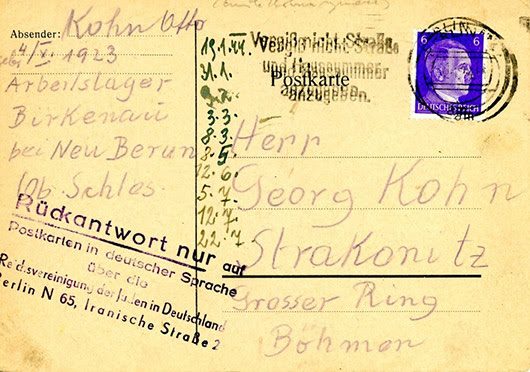 Absender:
Kohn Otto
4/XI. 1923
Arbeitslager
Birkenau
bei Neu Berun
Ob. Schles.
Rückantwort nur auf
Postkarten in deutscher Sprache
über die
Reichsvereinigung der Juden in Deutschland
Berlin N 65, Iranische Straße 2
19.1.44.
31.1.
3.3.
8.3.
8.5
12.6.
5.7.
12.7.
22.7
Vergiß nicht Straße
und Hausnummer
anzugeben.
Postkarte
6 6
DEUTSCHES REICH
BERLIN
Herr
Georg Kohn
Strakonitz
Grosser Ring
Böhmen